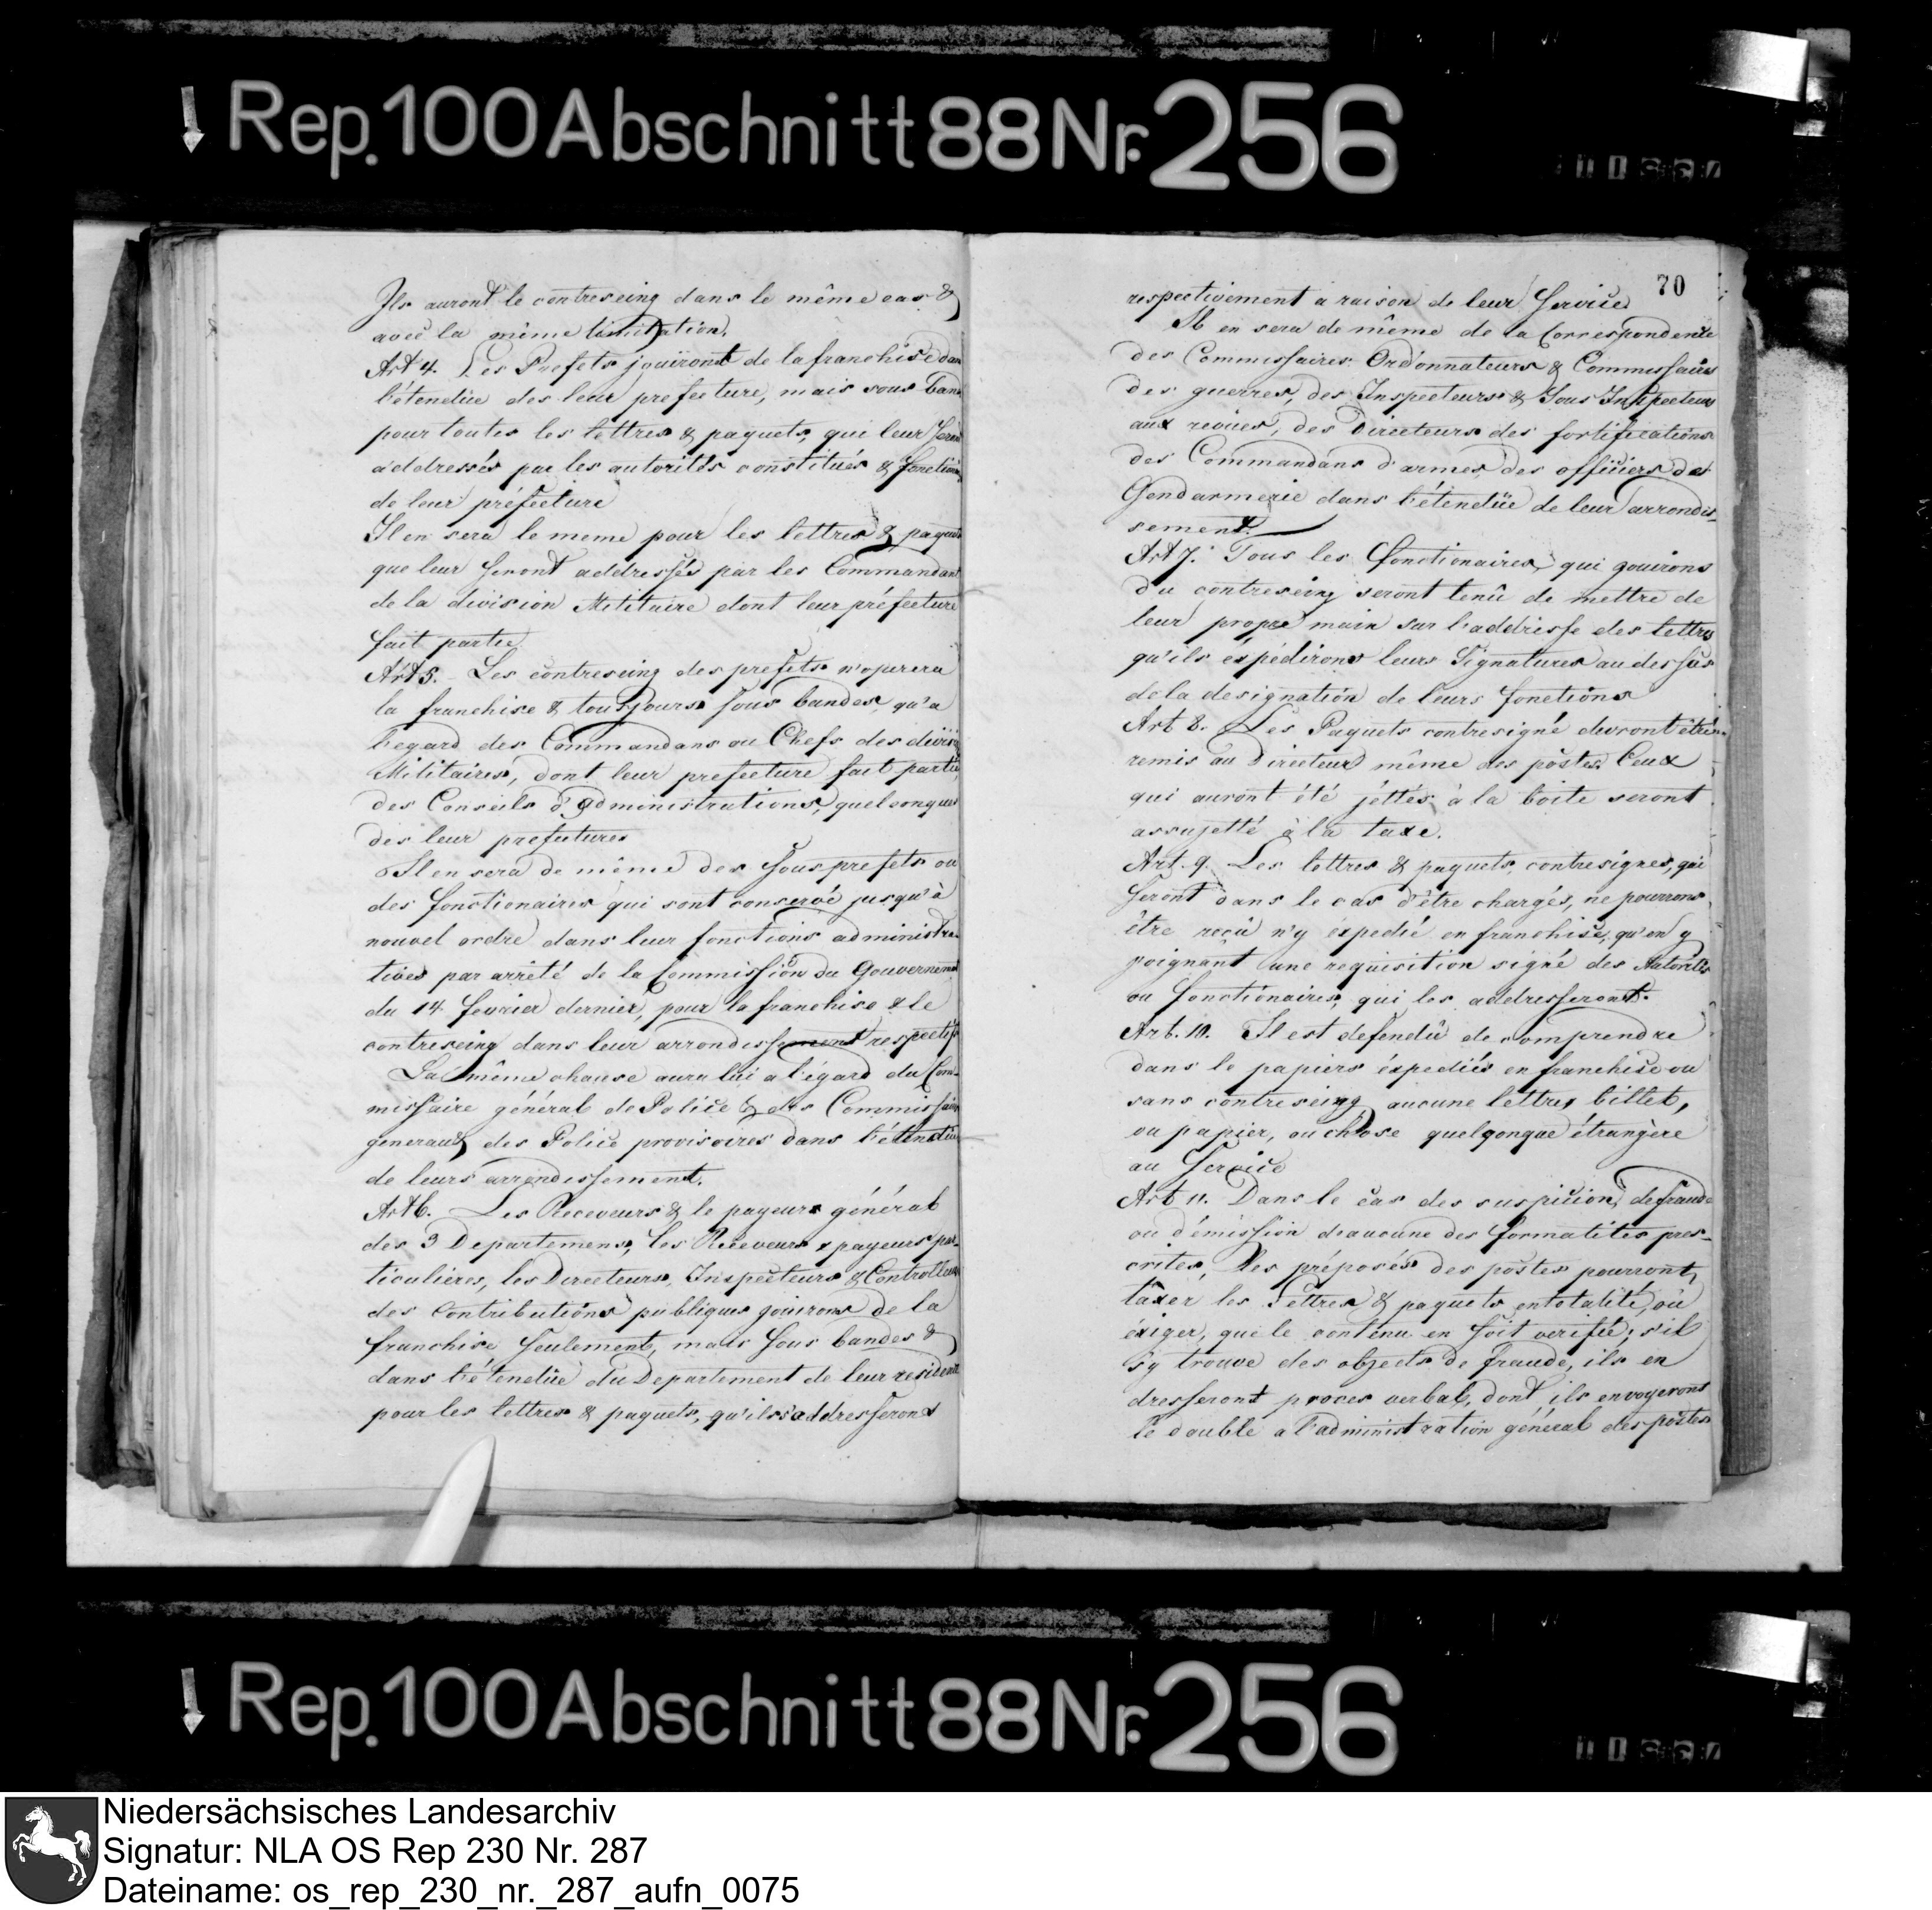 Rep. 100 Abschnitt 88 Nr. 256
Ils auront le contreseing dans le même cas &
avec la même limitation.
Art 4. Les Prefets jouiront de la franchise dans
l'étendüe des leur prefecture, mais sous bande
pour toutes les lettres & paquets, qui leur seron
addressés par les autorités constitués & fonction
de leur préfecture
Il en sera le meme pour les lettres & paquets
que leur seront addressés par les Commandant
de la division Militaire dont leur préfecture
fait partie
Art 5. Les contreseing des prefets n'operera
la franchise & tousjours sous bandes, qu'a
l'egard des Commandans ou Chefs des division
Militaires, dont leur prefecture fait partie,
des Conseils d'administrations, quelconques
des leur prefectures
Il en sera de même des Sousprefets ou
des fonctionaires qui sont conservé jusqu'à
nouvel ordre dans leur fonctions administra-
tives par arrêté de la Commission du Gouvernement
du 14 fevrier dernier, pour la franchise & le
contreseing dans leur arrondissement respectif
La même chause aura lui a l'égard du Com-
missaire général de Police & des Commissair
generaux des Police provisoires dans l'étendüe
de leurs arrondissement.
Art 6. Les Receveurs & le payeurs général
des 3 Departemens, les Receveurs & payeurs par-
ticulieres, les Directeurs, Inspecteurs & Controlleurs
des Contributions publiques gouirons de la
franchise seulement, mais sous bandes &
dans l'étendüe du Departement de leur residence
pour les lettres & paquets, qu'ils s'addresseront
70
respectivement a raison de leur Service
Il en sera de même de la Correspondence
des Commissaires Ordonnateurs & Commissaires
des guerres, des Inspecteurs & Sous Inspecteurs
aux revües, des Directeurs des fortifications
des Commandans d'armes des officiers de
Gendarmerie dans l'étendüe de leur arrondis-
sement.
Art 7. Tous les fonctionaires, qui gouirons
du contreseing seront tenû de mettre de
leur propre main sur l'addresse des lettres
qu'ils éxpédirons leurs Signatures au dessus
de la designation de leurs fonctions
Art 8. Les Paquets contresigné devront être
remis au Directeur même des postes. Ceux
qui auront été jéttés à la boite seront
assujetté à la taxe.
Art. 9. Les lettres & paquets, contresignes, qui
seront dans le cas d'être chargés, ne pourrons
être reçû n'y éxpedié en franchise, qu'en y
joignant une requisition signé des Autorités
ou fonctionaires, qui les addresseront.
Art. 10. Il est defendû de comprendre
dans le papiers éxpediés en franchise ou
sans contreseing aucune lettre, billet,
ou papier, ou chose quelqonque étrangère
au Service
Art 11. Dans le cas des suspicion, de fraude
ou d'émission d'aucune des formalités pres-
crites, les préposés des postes pourront,
taxer les Lettres & paquets en totalité, où
éxiger, que le contenu en soit verifié; s'il
s'y trouve des objects de fraude, ils en
dresseront proces verbal, dont ils envoyeront
le double a l'administration général des postes
Rep. 100 Abschnitt 88 Nr. 256
Niedersächsisches Landesarchiv
Signatur: NLA OS Rep 230 Nr. 287
Dateiname: os_rep_230_nr._287_aufn_0075